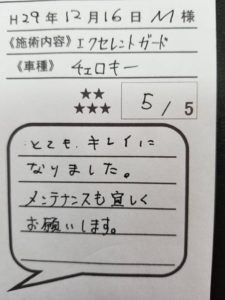 H29年12月16日 M 様
《施術内容》エクセレントガード
《車種》チェロキー
★★
★★★
5/5
とても、キレイに
なりました。
メンテナンスも宜しく
お願いします。